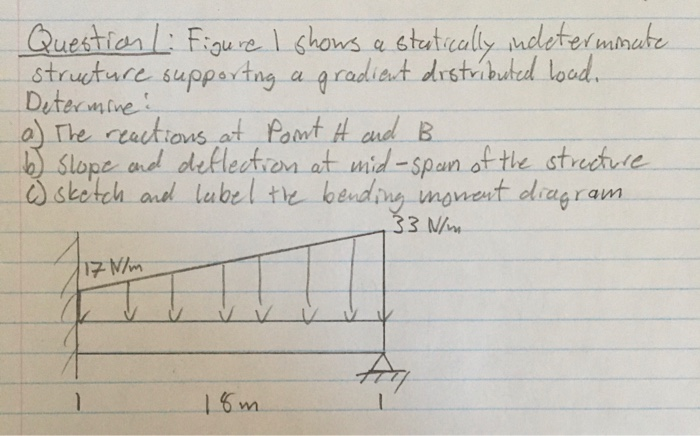 Question 1: Figure 1 shows a statically indeterminate
structure supporting a gradient distributed load.
Determine:
a) The reactions at Point A and B
b) Slope and deflection at mid-span of the structure
c) sketch and label the bending moment diagram
33 N/m
17 N/m
18m